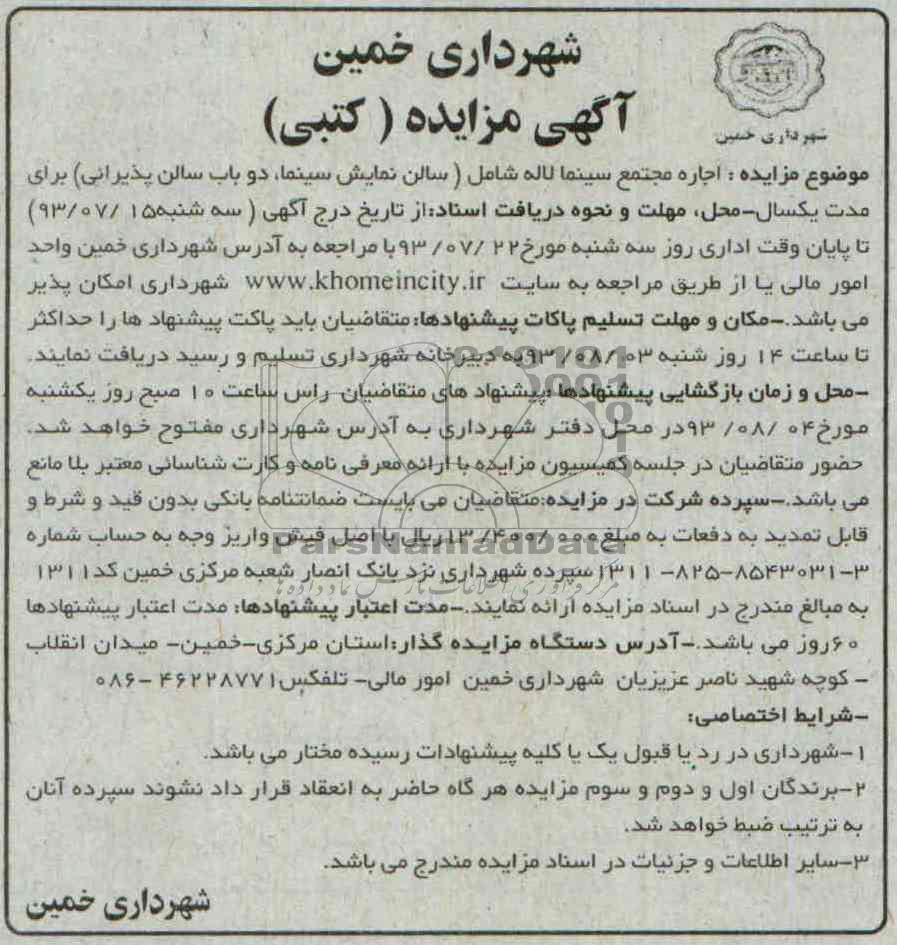 شهرداری خمین
آگهی مزایده ( کتبی)
شهرداری خمین
موضوع مزایده : اجاره مجتمع سینما لاله شامل ( سالن نمایش سینما، دو باب سالن پذیرائی) برای
مدت یکسال-محل، مهلت و نحوه دریافت اسناد:از تاریخ درج آگهی ( سه شنبه۱۵ /۹۳/۰۷)
تا پایان وقت اداری روز سه شنبه مورخ۲۲ /۰۷ /۹۳با مراجعه به آدرس شهرداری خمین واحد
امور مالی یا از طریق مراجعه به سایت www.khomeincity.ir شهرداری امکان پذیر
می باشد.-مکان و مهلت تسلیم پاکات پیشنهادها:متقاضیان باید پاکت پیشنهاد ها را حداکثر
تا ساعت ۱۴ روز شنبه ۰۳ /۰۸ /۹۳به دبیرخانه شهرداری تسلیم و رسید دریافت نمایند.
-محل و زمان بازگشایی پیشنهادها :پیشنهاد های متقاضیان راس ساعت ۱۰ صبح روز یکشنبه
مورخ۰۴ /۰۸ /۹۳در محل دفتر شهرداری به آدرس شهرداری مفتوح خواهد شد.
حضور متقاضیان در جلسه کمیسیون مزایده با ارائه معرفی نامه و کارت شناسائی معتبر بلا مانع
می باشد.-سپرده شرکت در مزایده:متقاضیان می بایست ضمانتنامه بانکی بدون قید و شرط و
قابل تمدید به دفعات به مبلغ۱۳/۴۰۰/۰۰۰ریال یا اصل فیش واریز وجه به حساب شماره
۳-۸۵۴۳۰۳۱-۸۲۵-۱۳۱۱سپرده شهرداری نزد بانک انصار شعبه مرکزی خمین کد۱۳۱۱
به مبالغ مندرج در اسناد مزایده ارائه نمایند.-مدت اعتبار پیشنهادها: مدت اعتبار پیشنهادها
۶۰روز می باشد.-آدرس دستگاه مزایده گذار:استان مرکزی-خمین- میدان انقلاب
- کوچه شهید ناصر عزیزیان شهرداری خمین امور مالی- تلفکس۴۶۲۲۸۷۷۱ -۰۸۶
-شرایط اختصاصی:
۱-شهرداری در رد یا قبول یک یا کلیه پیشنهادات رسیده مختار می باشد.
۲-برندگان اول و دوم و سوم مزایده هر گاه حاضر به انعقاد قرار داد نشوند سپرده آنان
به ترتیب ضبط خواهد شد.
۳-سایر اطلاعات و جزئیات در اسناد مزایده مندرج می باشد.
شهرداری خمین
ParsNamadData